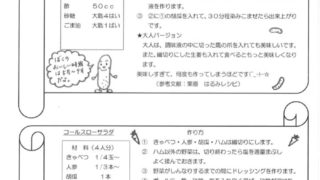 酢 50cc
砂糖 大匙4はい
ごま油 大匙1ぱい
③ ②に①の胡瓜を入れて、30分程染みこませたら出来上がり
です。
★大人バージョン
大人は、調味液の中に切った鷹の爪を入れても美味しいです。
また、細切りした生姜も入れて食べるともっと美味しくなり
ます。
美味しすぎて、何度も作ってしまうほどです(^_-)-☆
(参考文献:栗原 はるみレシピ)
コールスローサラダ
材料(4人分)
きゃべつ 1/4玉~
人参 1/3本
胡瓜 1本
作り方
① きゃべつ・人参・胡瓜・ハムは細切りにします。
② ハム以外の野菜は、切り終わったら塩を適量まぶし
よく揉んでおきます。
③ 野菜がしんなりするまでの間にドレッシングを作ります。